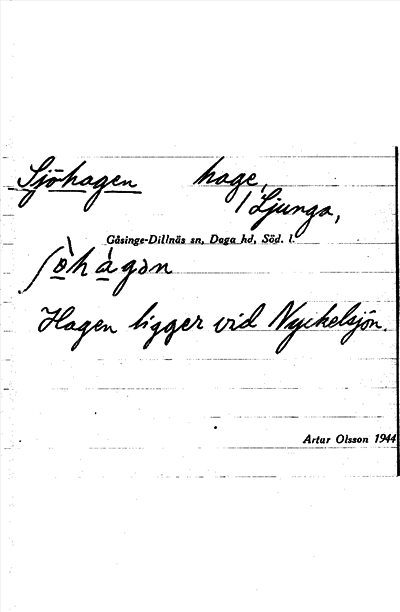 Sjöhagen hage,
/Ljunga,
Gåsinge-Dillnäs sn, Daga hd, Söd. l.
ʃɵ̀hàgən
Hagen ligger vid Nyckelsjön.
Artur Olsson 1944